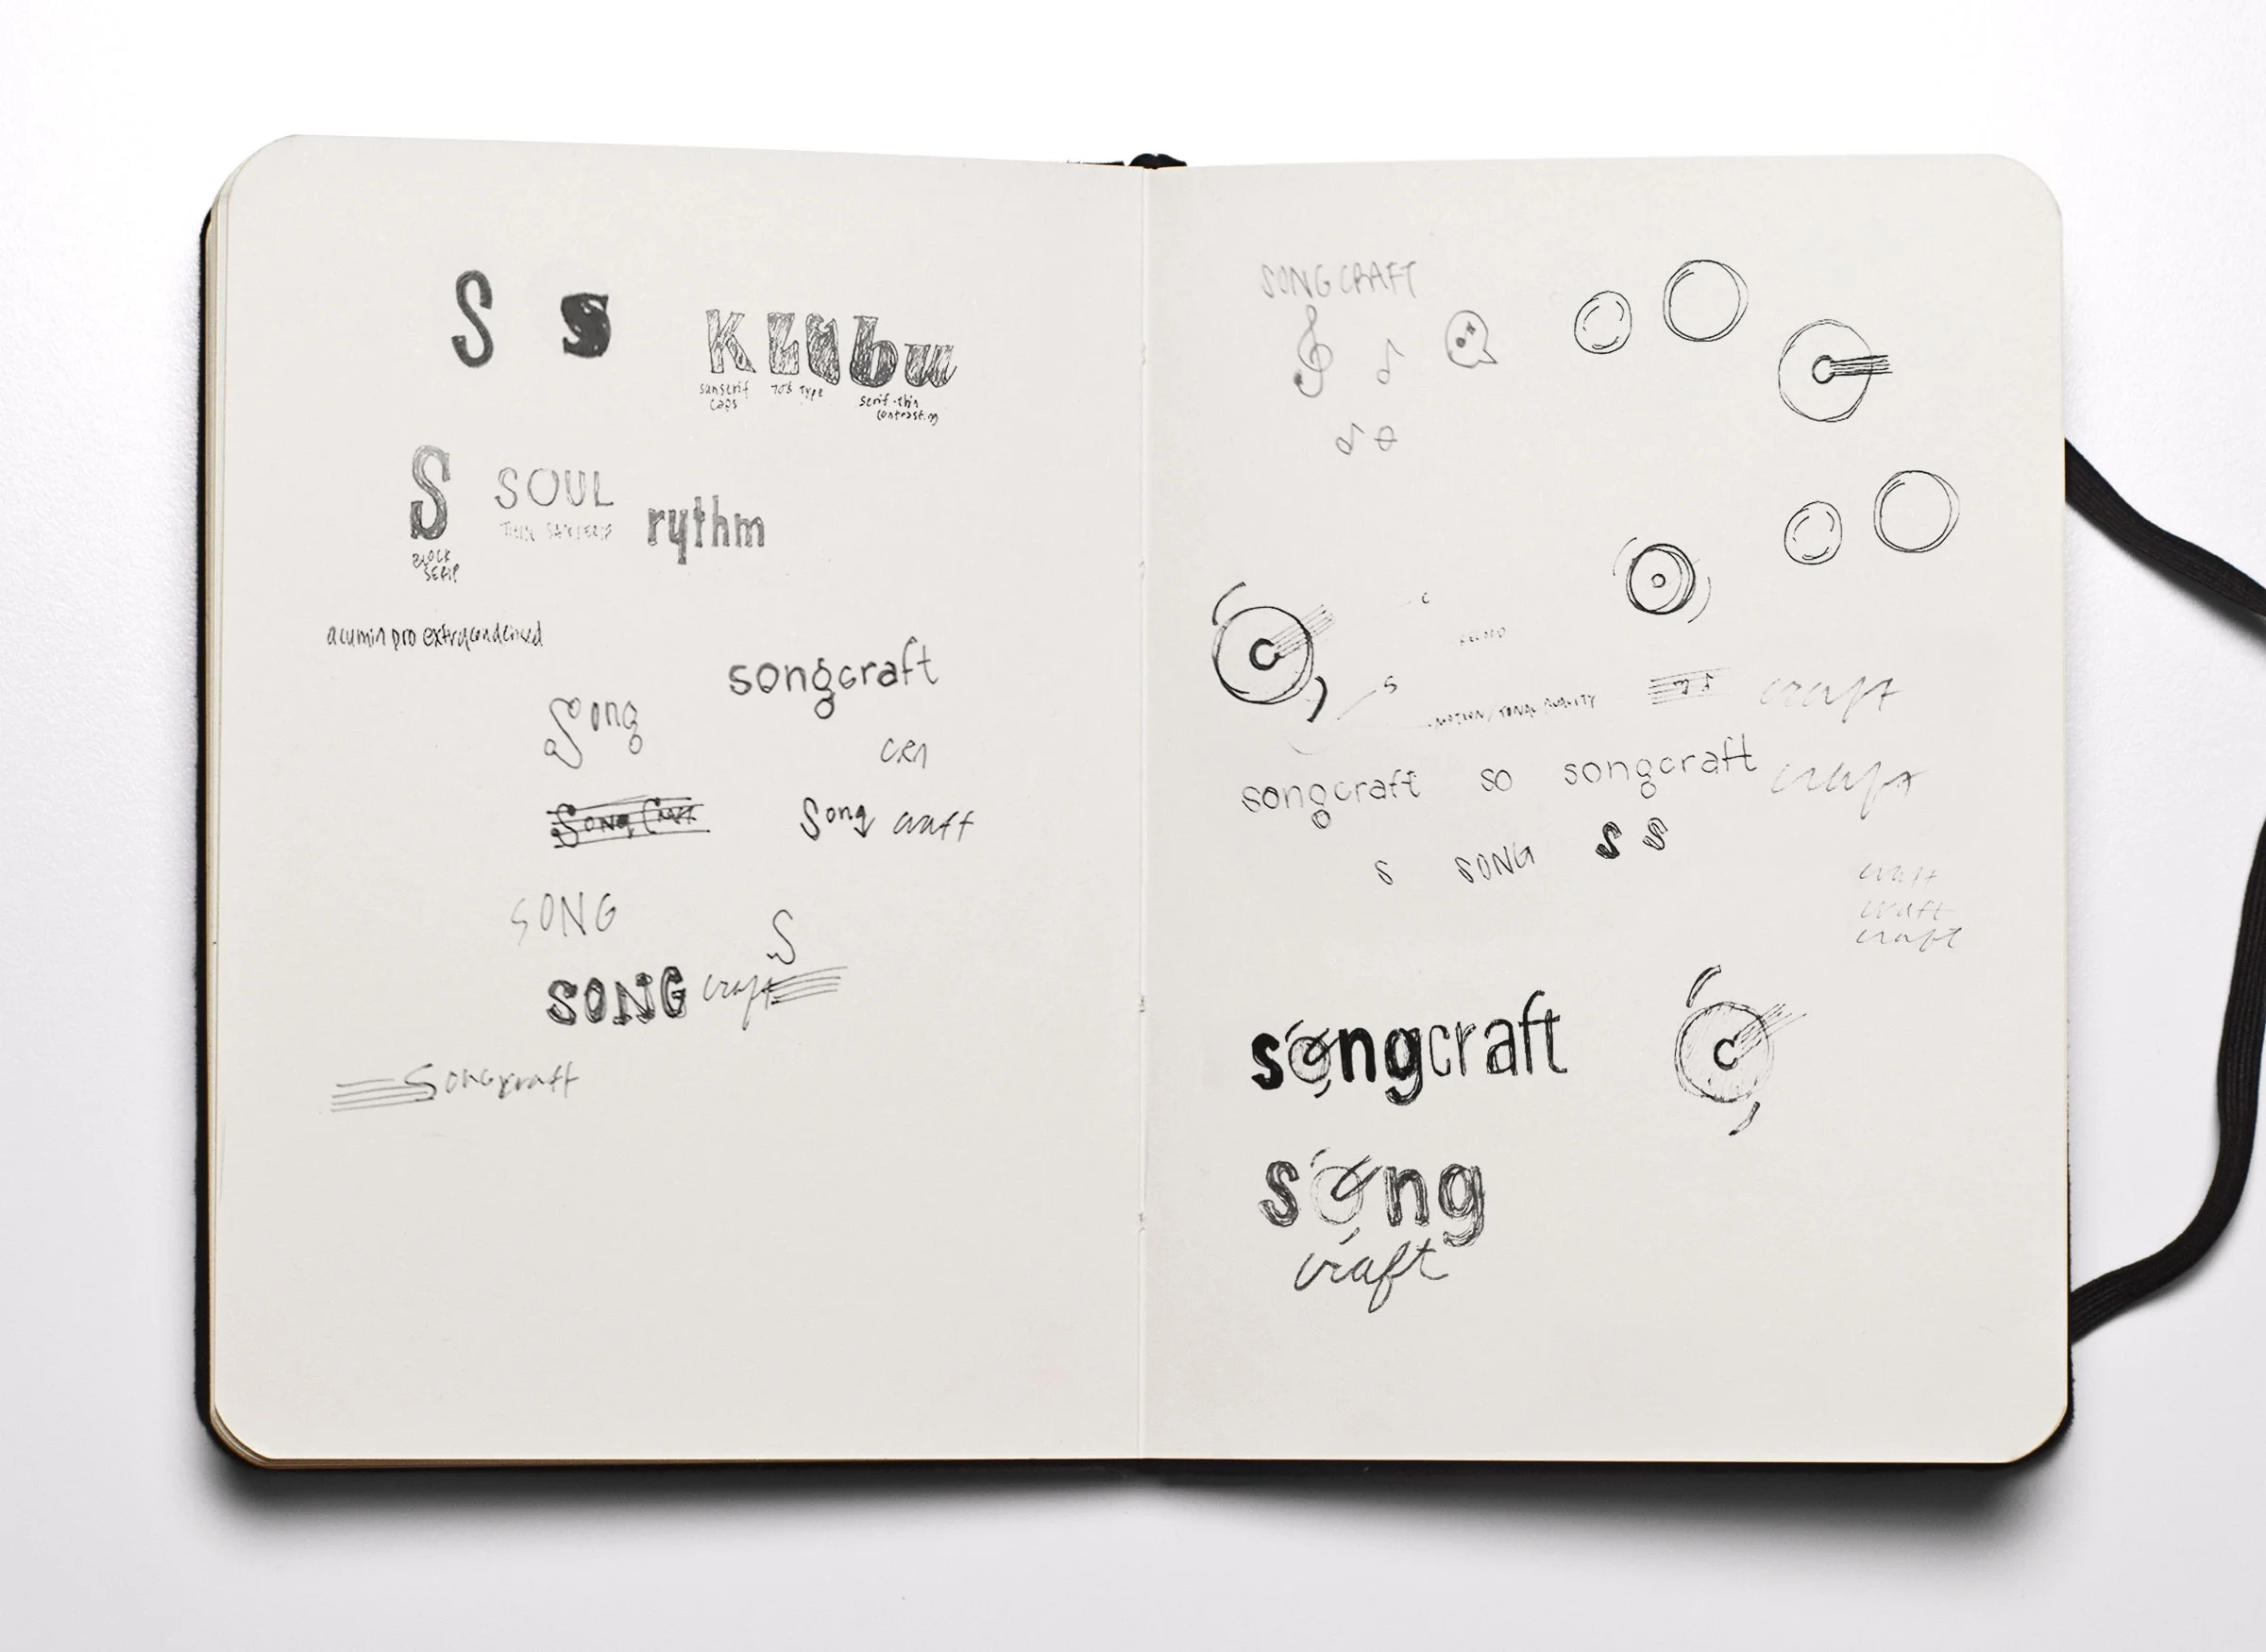 S S
K
sanserif
caps
70's Type
serif-thin
S
SOUL
THIN SANSERIF
rythm
BLOCK
SERIF
acumin pro extracondensed
songcraft
Song
Song Craft
Song craft
SONG
S
SONG craft
Songcraft
SONGCRAFT
C
S
MOTION/TONAL QUALITY
craft
songcraft so songcraft craft
S SONG S S
craft
craft
craft
songcraft
C
song
craft